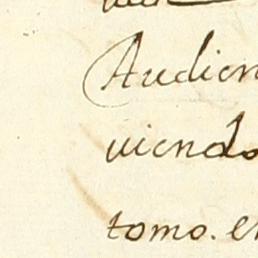 Audien
uiendo
tomo. en